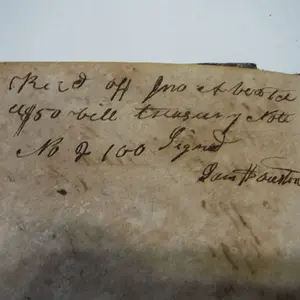 Recd off Jno
$50 bill treasury Note
No 2 100 Signed
Sam Houston